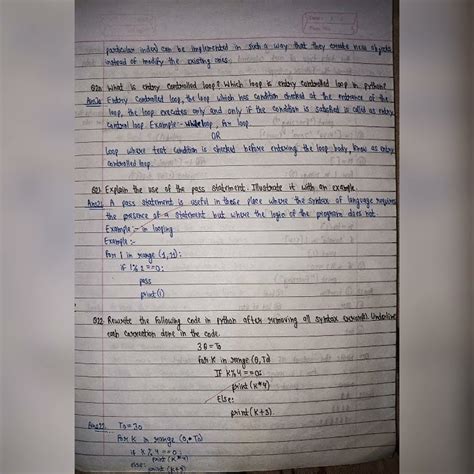 particular index) can be implemented in such a way that they create new objects
instead of modify the existing ones.
Q20. What is entry controlled loop? Which loop is entry controlled loop in python?
Ans20. Entry controlled loop, the loop which has condition checked at the entrance of the
loop, the loop executes only and only if the condition is satisfied is called as entry
control loop Example:- while loop, for loop.
OR
Loop where test condition is checked before entering the loop body, know as entry
controlled loop.
Q21. Explain the use of the pass statement. Illustrate it with an example.
Ans21. A pass statement is useful in those place where the syntax of language requires
the presence of a statement but where the logic of the program does not.
Example :- in looping.
Example:-
for i in range (1, 11):
if i% 2 ==0:
pass
print(i)
Q22. Rewrite the following code in python after removing all syntax error(s). Underline
each correction done in the code.
30 = To
for K in range (0, To)
IF K%4 ==0:
print (K*4)
Else:
print (K+3).
Ans22. To=30
for K in range (0, To)
if K % 4 ==0:
print (K*4)
else:
print (K+3)